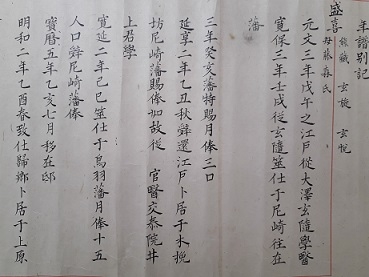 年譜別記
盛喜 玄旋 玄悅
母藤森氏
元文三年戊午之江戸從大澤玄隨學醫
寛保三年壬戌從玄隨筮仕于尼崎住在
藩
三年癸亥藩特賜月俸三口
延享二年乙丑秋辭還江戸卜居于木挽
坊尼崎藩賜俸如故從 官醫交泰院井
上君學
寛延二年己巳筮仕于鳥羽藩月俸十五
人口辭尼崎藩俸
寳曆五年乙亥七月移在邸
明和二年乙酉春致仕歸鄉卜居于上原